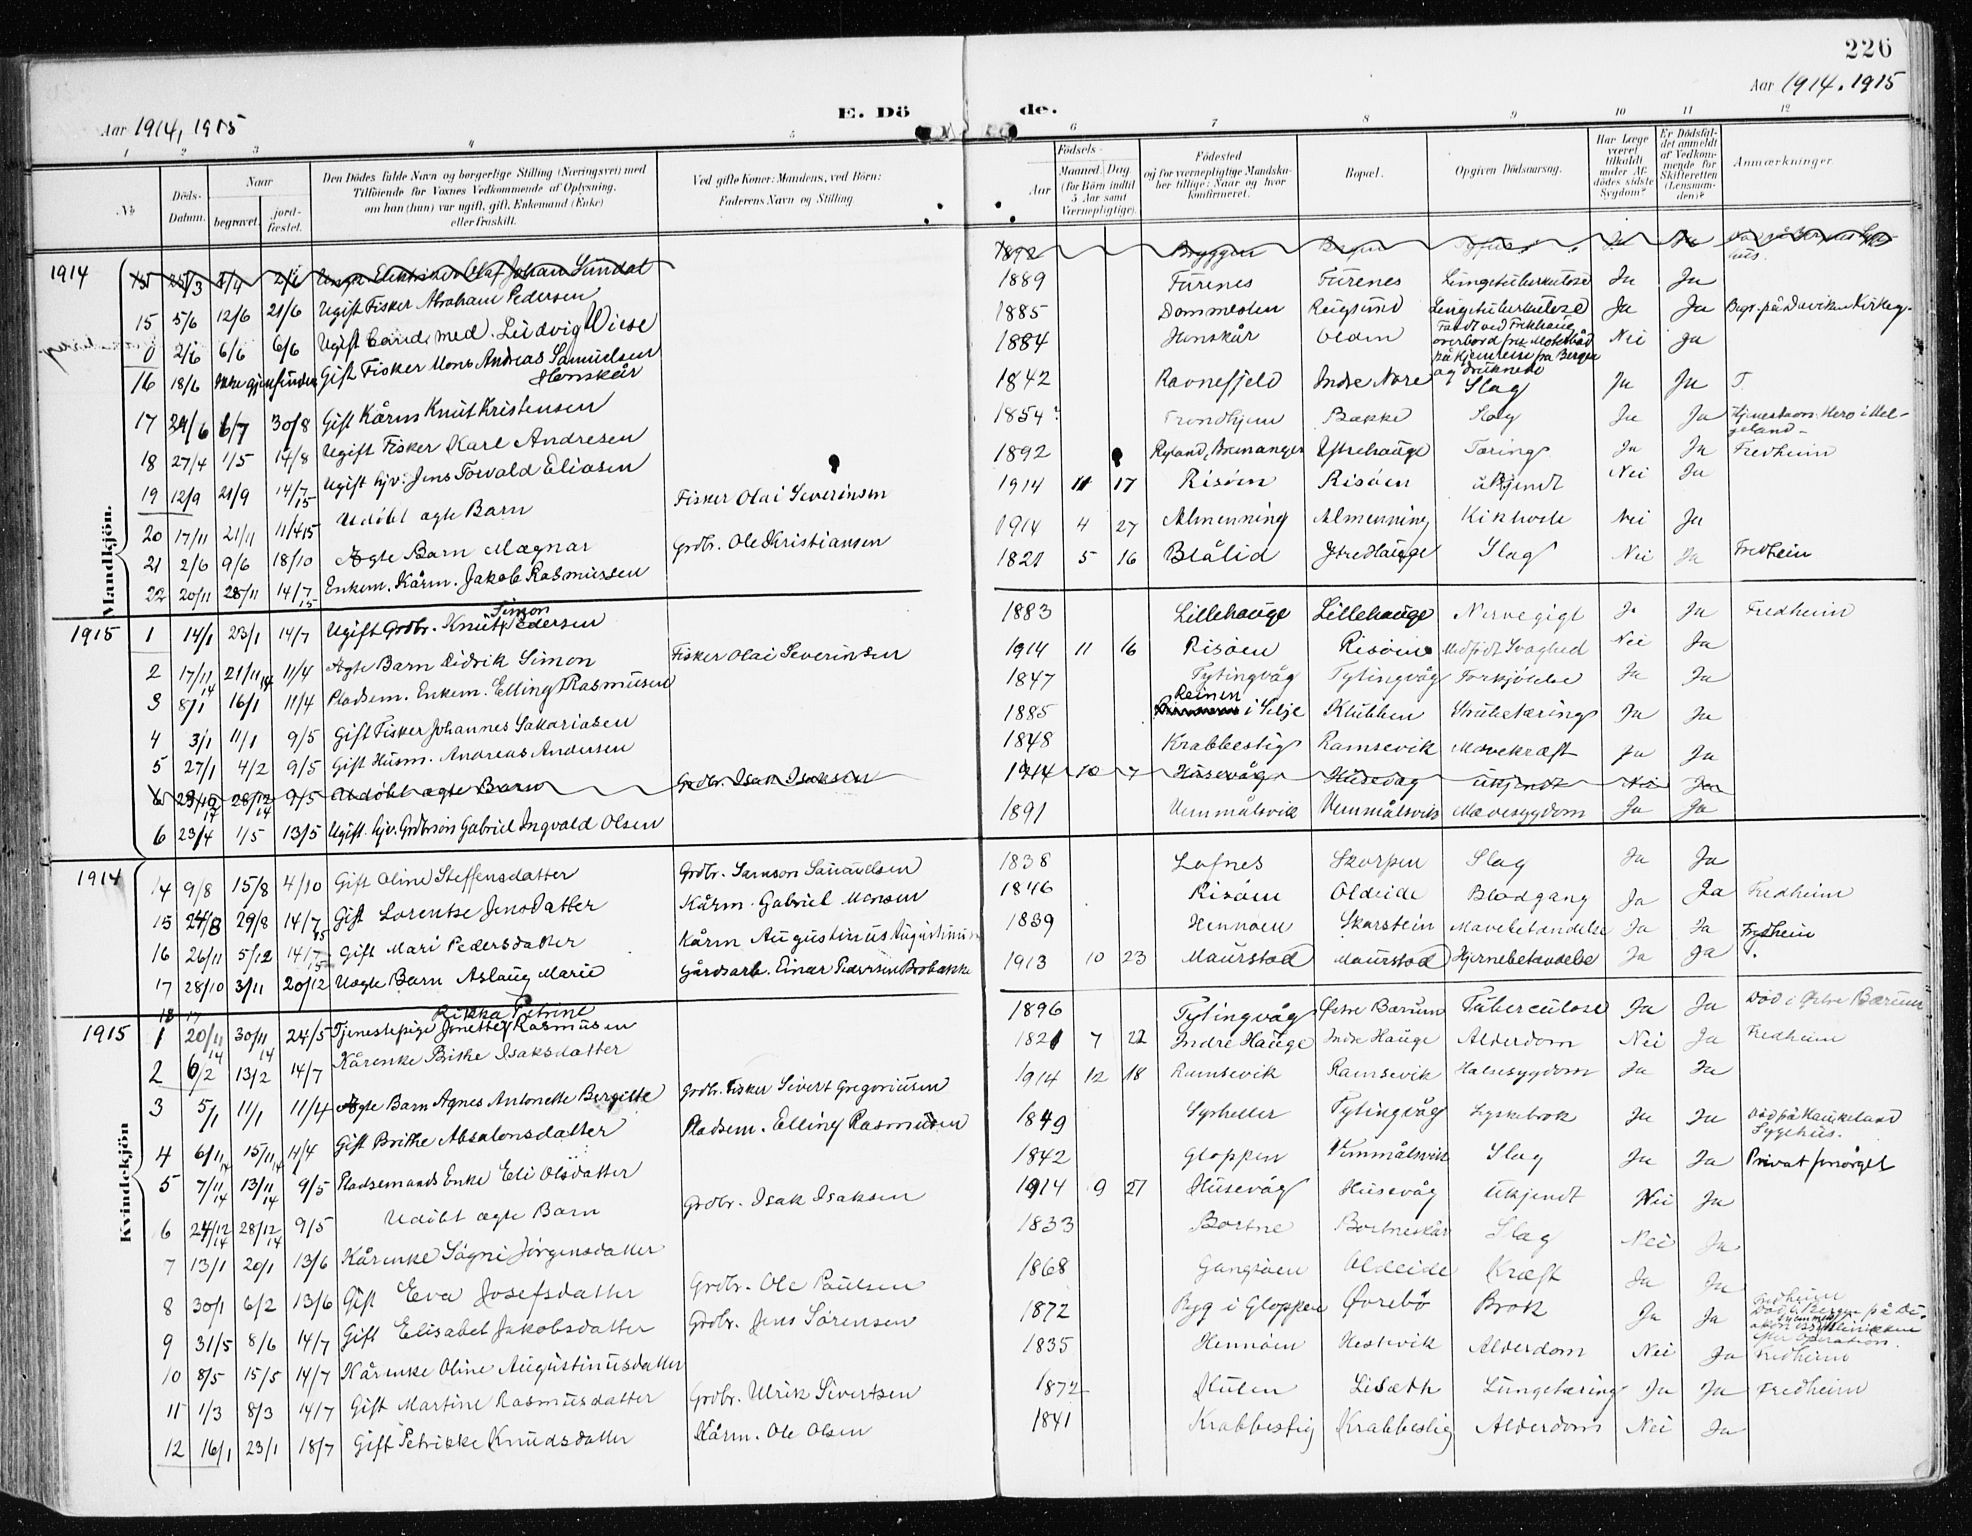 226
Aar 1914, 1915
E. Dö
de.
Aar 1914. 1915
1 2 3 4 5 6 7 8 9 10 11 12
No
Döds-Datum.
Naar
begravet.
jord-fæstet.
Den Dödes fulde Navn og borgerlige Stilling (Næringsvei) med
Tilföiende for Voxnes Vedkommende af Oplysning,
om han (hun) var ugift, gift, Enkemand (Enke)
eller fraskilt.
Ved gifte Koner: Mandens, ved Börn:
Faderens Navn og Stilling.
Födsels-
Aar
Maaned. Dag.
(for Börn indtil
5 Aar samt
Værnepligtige).
Födested
og for værnepligtige Mandska-
ber tillige: Naar og hvor
konfirmeret.
Bopæl.
Opgiven Dödsaarsag.
Har Læge
været
tilkaldt
under Af-
dödes sidste
Sygdom?
Er Dödsfal-
det anmeldt
af Vedkom-
mende for
Skifteretten
(Lensman-
den)?
Anmærkninger.
Mandkjön.
1914
15 25/3 1/4 2/6 Ugift Olaf Johan Sundal 1892 Bryggen Ja Ja
15 5/6 12/6 21/6 Ugift Fisker Abraham Pedersen 1889 Furenes Furenes Lungetuberkulose Ja Ja
0 2/6 6/6 6/6 Ugift Cand. med. Ludvig Wiese 1885 Dommesten Reugsund Lungetuberkulose Ja Ja Begr. på Davikens Kirkeg.
16 18/6 Ikke gjenfunden Gift Fisker Mons Andreas Samuelsen Henskår 1884 Henskår Olden Faldt ved overbord fra Motorbåd på hjemreise fra Bergen og druknede Nei Ja
17 24/6 6/7 30/8 Gift Kårm Knut Kristensen 1842 Ravnefjeld Indre Nore Slag Ja Ja T.
18 27/4 1/5 14/8 Ugift Fisker Karl Andresen 1854? Trondhjem Bakke Slag Ja Ja
19 12/9 21/9 14/7 15 Ugift hjv: Jens Torvald Eliasen 1892 Ryland, Bremanger Ystrehauge Tæring Ja Ja Fredheim
20 17/11 21/11 11/4 15 Udöbt ægte Barn Fisker Olai Severinsen 1914 11 17 Risöen Risöen Ukjendt Nei Ja
21 2/6 9/6 18/10 Ægte Barn Magnar Grdbr. Ole Kristiansen 1914 4 27 Almenning Almenning Kikhoste Nei Ja
22 20/11 28/11 14/7 15 Enkem. Kårm. Jakob Rasmussen 1821 5 16 Blålid Ystrehauge Slag Nei Ja Fredheim
1915
1 14/1 23/1 14/7 Ugift Grdbr. Knut Simon Pedersen 1883 Lillehauge Lillehauge Nervegigt Ja Ja Fredheim
2 17/11 14 21/11 14 11/4 Ægte Barn Didrik Simon Fisker Olai Severinsen 1914 11 16 Risöen Risöen Medfödt Svaghed Nei Ja
3 8/1 16/1 11/4 Pladsem. Enkem. Elling Rasmusen 1847 Tytingvåg Tytingvåg Forkjölelse Ja Ja
4 3/1 11/1 9/5 Gift Fisker Johannes Sakariasen 1885 Reinen i Selje Klubben Strubetæring Ja Ja
5 27/1 4/2 9/5 Gift Husm. Andreas Andersen 1848 Krabbestig Ramsevik Mavekræft Ja Ja
6 28/12 14 9/5 Udöbt ægte Barn Grdbr. Isak Isaksen 1914 10 7 Husevåg Husevåg Ukjendt Nei Ja
6 23/4 1/5 13/5 Ugift hjv. Grdbrsön Gabriel Ingvald Olsen 1891 Vemmålsvik Vemmålsvik Mavesygdom Ja Ja
Kvindekjön
1914
14 9/8 15/8 4/10 Gift Oline Steffensdatter Grdbr. Samson Samuelsen 1838 Lofnes Skorpen Slag Ja Ja
15 24/8 29/8 14/7 15 Gift Lorentse Jensdatter Kårm. Gabriel Monsen 1846 Risöen Oldeide Blodgang Ja Ja Fredheim
16 26/11 5/12 14/7 15 Gift Mari Pedersdatter Kårm Augustinus Augustinusen 1839 Hennöen Skarstein Mavebetændelse Ja Ja Fredheim
17 28/10 3/11 20/12 Uægte Barn Aslaug Marie Gårdsarb. Einar Pedersen Brobakke 1913 10 23 Maurstad Maurstad Hjernebetændelse Ja Ja
18 17
1915
1 20/11 14 30/11 14 24/5 Tjenestepige Jonette Rikka Petrine Rasmusen 1896 Tytingvåg Östre Bærum Tuberculose Ja Ja Död i Östre Bærum
2 6/2 13/2 14/7 Kårenke Brithe Isaksdatter 1821 7 22 Indre Hauge Indre Hauge Alderdom Nei Ja Fredheim
3 5/1 11/1 11/4 Ægte Barn Agnes Antonette Bergitte Grdbr. Fisker Sivert Gregoriusen 1914 12 18 Ramsevik Ramsevik Halsesygdom Ja Ja
4 6/11 14 15/11 14 11/4 Gift Brithe Absalonsdatter Pladsem. Elling Rasmusen 1849 Tytingvåg Lyskebrok Ja Ja Död på Haukeland Sygehus.
5 7/11 14 13/11 14 9/5 Pladsemands Enke Eli Olsdatter 1842 Gloppen Vemmålsvik Slag Ja Ja Privat forsörget
6 24/12 14 28/12 14 9/5 Udöbt ægte Barn Grdbr. Isak Isaksen 1914 9 27 Husevåg Husevåg Ukjendt Nei Ja
7 13/1 20/1 13/6 Kårenke Sögni Jörgensdatter 1833 Bortne Bortneskår Slag Nei Ja
8 30/1 6/2 13/6 Gift Eva Josefsdatter Grdbr. Ole Paulsen 1868 Gangsöen Oldeide Kræft Ja Ja
9 31/5 8/6 14/7 Gift Elisabet Jakobsdatter Grdbr. Jens Sörensen 1872 Byg i Gloppen Övrebö Brok Ja Ja Fredheim Död i Bergen på efter operation.
10 8/5 15/5 14/7 Kårenke Oline Augustinusdatter 1835 Hennöen Hestevik Alderdom Nei Ja Fredheim
11 1/3 8/3 14/7 Gift Martine Rasmusdatter Grdbr. Ulrik Sivertsen 1872 Hulen Lisæth Lungetæring Ja Ja Fredheim
12 16/1 23/1 18/7 Gift Petrikke Knudsdatter Kårm. Ole Olsen 1841 Krabbestig Krabbestig Alderdom Nei Ja